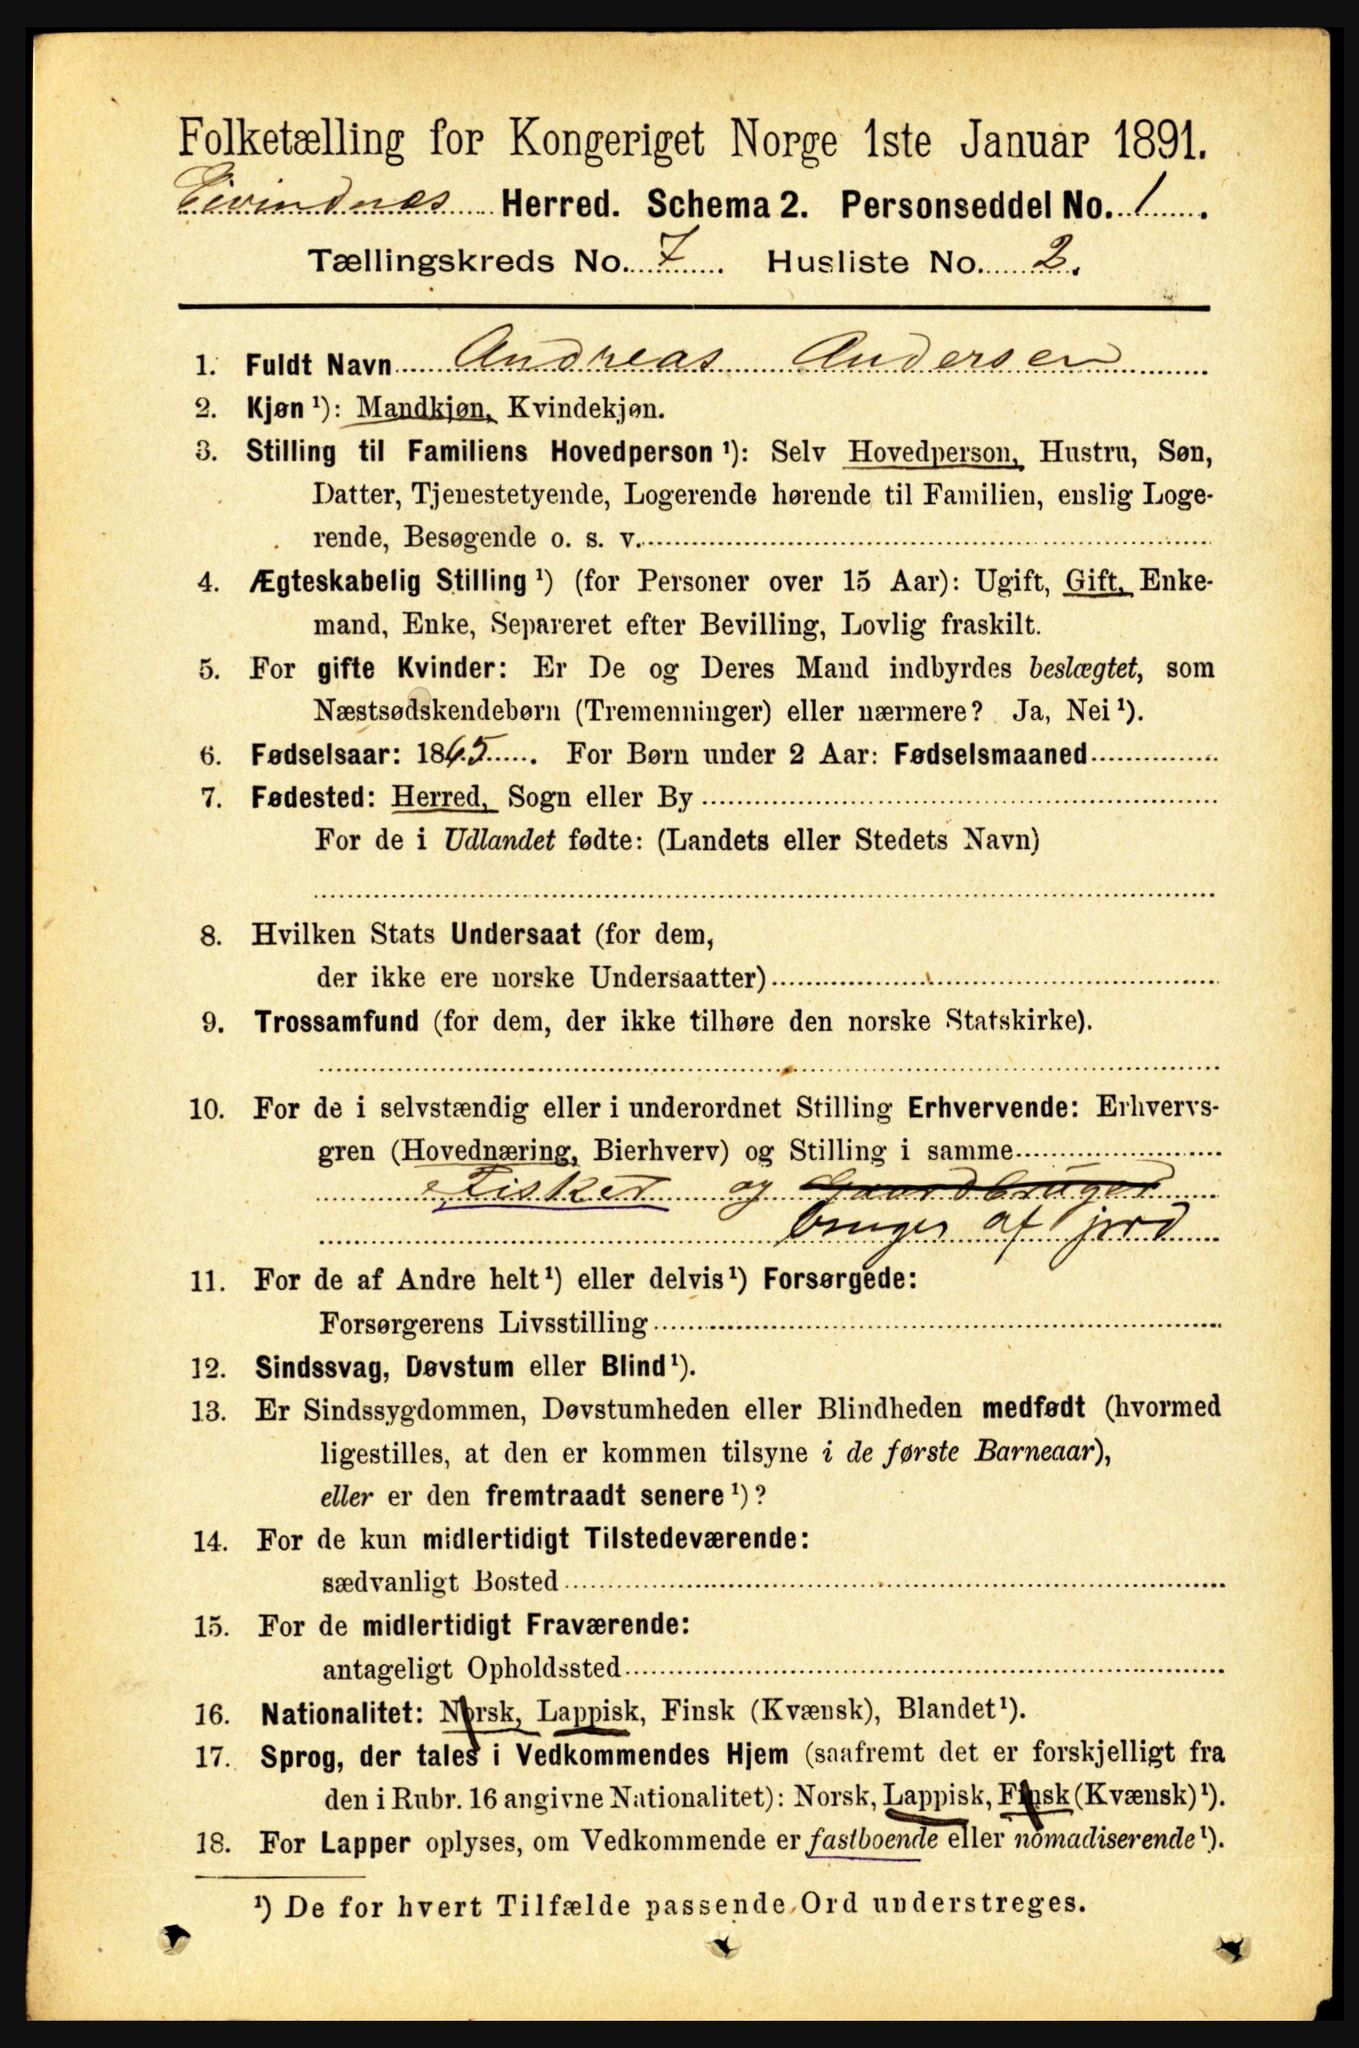 Folketælling for Kongeriget Norge 1ste Januar 1891.
Eivindnes Herred. Schema 2. Personseddel No. 1.
Tællingskreds No. 7. Husliste No. 2.
1. Fuldt Navn Andreas Andersen
2. Kjøn ¹): Mandkjøn, Kvindekjøn.
3. Stilling til Familiens Hovedperson ¹): Selv Hovedperson, Hustru, Søn,
Datter, Tjenestetyende, Logerende hørende til Familien, enslig Loge-
rende, Besøgende o. s. v.
4. Ægteskabelig Stilling ¹) (for Personer over 15 Aar): Ugift, Gift, Enke-
mand, Enke, Separeret efter Bevilling, Lovlig fraskilt.
5. For gifte Kvinder: Er De og Deres Mand indbyrdes beslægtet, som
Næstsødskendebørn (Tremenninger) eller nærmere? Ja, Nei ¹).
6. Fødselsaar: 1865. For Børn under 2 Aar: Fødselsmaaned
7. Fødested: Herred, Sogn eller By
For de i Udlandet fødte: (Landets eller Stedets Navn)
8. Hvilken Stats Undersaat (for dem,
der ikke ere norske Undersaatter)
9. Trossamfund (for dem, der ikke tilhøre den norske Statskirke).
10. For de i selvstændig eller i underordnet Stilling Erhvervende: Erhvervs-
gren (Hovednæring, Bierhverv) og Stilling i samme
Fisker og Gaardbruger
bruger af jord
11. For de af Andre helt ¹) eller delvis ¹) Forsørgede:
Forsørgerens Livsstilling
12. Sindssvag, Døvstum eller Blind ¹).
13. Er Sindssygdommen, Døvstumheden eller Blindheden medfødt (hvormed
ligestilles, at den er kommen tilsyne i de første Barneaar),
eller er den fremtraadt senere ¹)?
14. For de kun midlertidigt Tilstedeværende:
sædvanligt Bosted
15. For de midlertidigt Fraværende:
antageligt Opholdssted
16. Nationalitet: Norsk, Lappisk, Finsk (Kvænsk), Blandet ¹).
17. Sprog, der tales i Vedkommendes Hjem (saafremt det er forskjelligt fra
den i Rubr. 16 angivne Nationalitet): Norsk, Lappisk, Finsk (Kvænsk) ¹).
18. For Lapper oplyses, om Vedkommende er fastboende eller nomadiserende ¹).
¹) De for hvert Tilfælde passende Ord understreges.